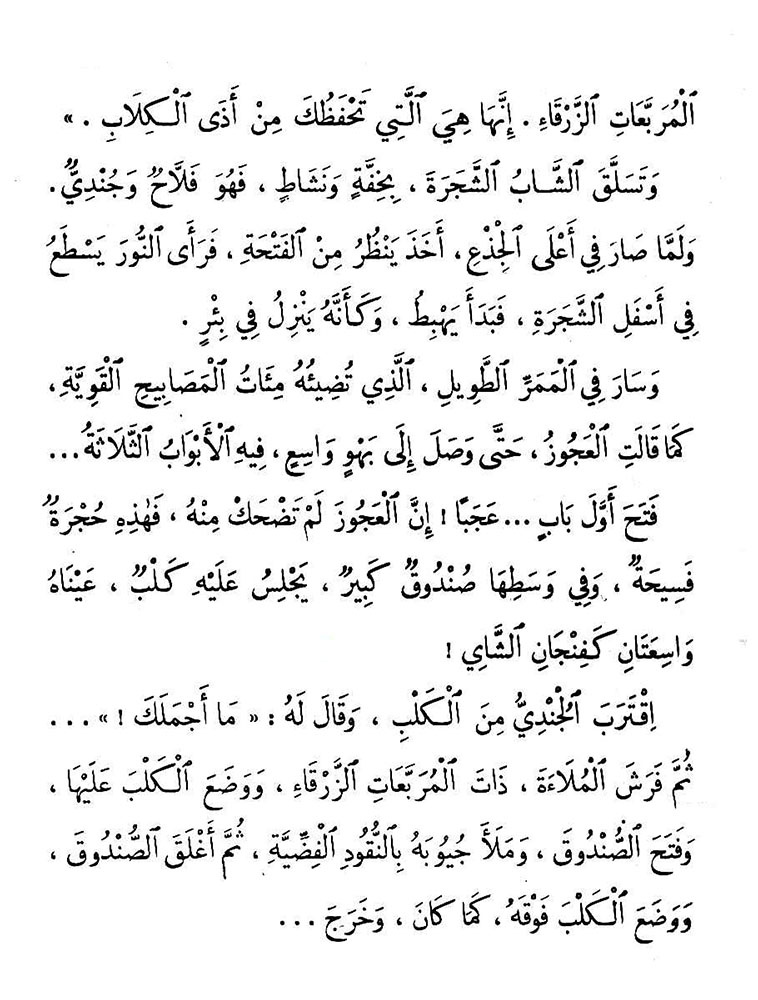 ٱلْمُرَبَّعَاتِ ٱلزَّرْقَاءِ . إِنَّهَا هِيَ ٱلَّتِي تَحْفَظُكَ مِنْ أَذَى ٱلْكِلَابِ . »
وَتَسَلَّقَ ٱلشَّابُ ٱلشَّجَرَةَ ، بِخِفَّةٍ وَنَشَاطٍ ، فَهُوَ فَلَّاحٌ وَجُنْدِيٌّ .
وَلَمَّا صَارَ فِي أَعْلَى ٱلْجِذْعِ ، أَخَذَ يَنْظُرُ مِنْ ٱلفَتْحَةِ ، فَرَأَى ٱلنُّورَ يَسْطَعُ
فِي أَسْفَلِ ٱلشَّجَرَةِ ، فَبَدَأَ يَهْبِطُ ، وَكَأَنَّهُ يَنْزِلُ فِي بِئْرٍ .
وَسَارَ فِي ٱلْمَمَرِّ ٱلطَّوِيلِ ، ٱلَّذِي تُضِيئُهُ مِئَاتُ ٱلْمَصَابِيحِ ٱلْقَوِيَّةِ ،
كَمَا قَالَتِ ٱلْعَجُوزُ ، حَتَّى وَصَلَ إِلَى بَهْوٍ وَاسِعٍ ، فِيهِ ٱلْأَبْوَابُ ٱلثَّلَاثَةُ ...
فَتَحَ أَوَّلَ بَابٍ ... عَجَبًا ! إِنَّ ٱلْعَجُوزَ لَمْ تَضْحَكْ مِنْهُ ، فَهٰذِهِ حُجْرَةٌ
فَسِيحَةٌ ، وَفِي وَسَطِهَا صُنْدُوقٌ كَبِيرٌ ، يَجْلِسُ عَلَيْهِ كَلْبٌ ، عَيْنَاهُ
وَاسِعَتَانِ كَفِنْجَانِ ٱلشَّايِ !
اِقْتَرَبَ ٱلْجُنْدِيُّ مِنَ ٱلْكَلْبِ ، وَقَالَ لَهُ : « مَا أَجْمَلَكَ ! » ...
ثُمَّ فَرَشَ ٱلْمُلَاءَةَ ، ذَاتَ ٱلْمُرَبَّعَاتِ ٱلزَّرْقَاءِ ، وَوَضَعَ ٱلْكَلْبَ عَلَيْهَا ،
وَفَتَحَ ٱلصُّنْدُوقَ ، وَمَلَأَ جُيُوبَهُ بِٱلنُّقُودِ ٱلْفِضِّيَّةِ ، ثُمَّ أَغْلَقَ ٱلصُّنْدُوقَ ،
وَوَضَعَ ٱلْكَلْبَ فَوْقَهُ ، كَمَا كَانَ ، وَخَرَجَ ...